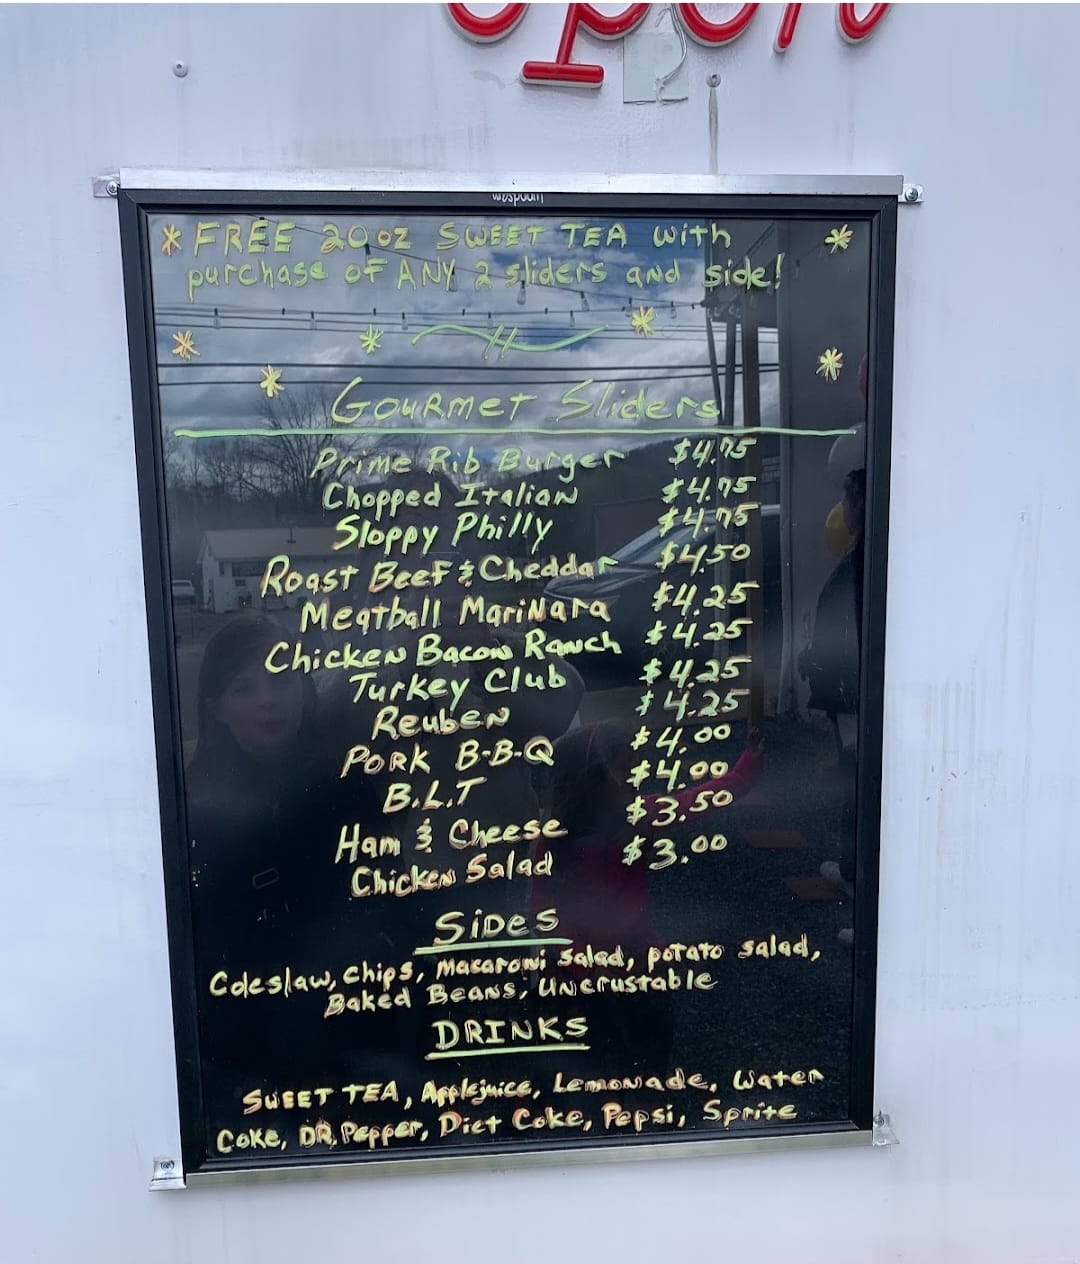 open
wespoum
* FREE 20 oz SWEET TEA with *
purchase of ANY 2 sliders and side!
Gourmet Sliders
Prime Rib Burger $4.75
Chopped Italian $4.75
Sloppy Philly $4.75
Roast Beef & Cheddar $4.50
Meatball Marinara $4.25
Chicken Bacon Ranch $4.25
Turkey Club $4.25
Reuben $4.25
PORK B-B-Q $4.00
B.L.T $4.00
Ham & Cheese $3.50
Chicken Salad $3.00
SiDeS
Coleslaw, chips, macaroni salad, potato salad,
Baked Beans, Uncrustable
DRINKS
SWEET TEA, Applejuice, Lemonade, Water
Coke, DR. Pepper, Diet Coke, Pepsi, Sprite